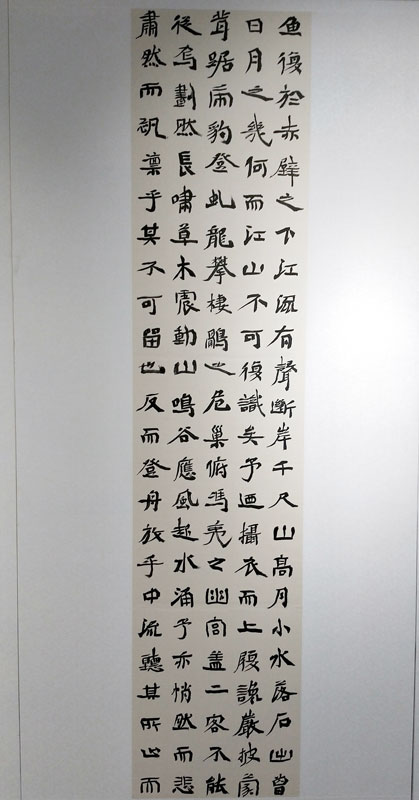 魚復於赤壁之下江流有聲斷岸千尺山高月小水落石出曾
日月之幾何而江山不可復識矣予迺攝衣而上履讒巖披蒙
茸踞虎豹登虬龍攀棲鶻之危巢俯馮夷之幽宮蓋二客不能
從焉劃然長嘯草木震動山鳴谷應風起水涌予亦悄然而悲
肅然而恐凜乎其不可留也反而登舟放乎中流聽其所止而